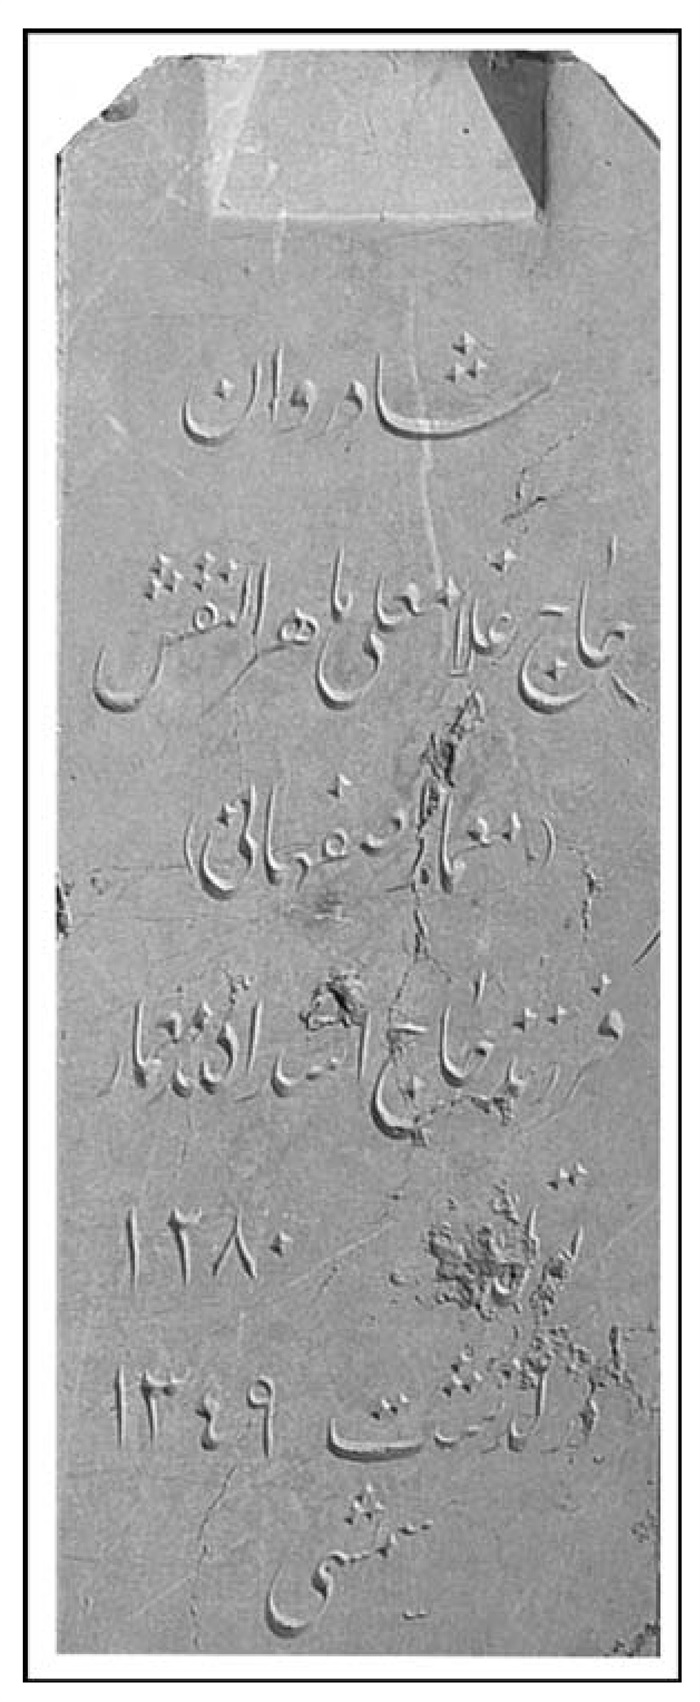 شادروان
حاج غلامعلی ماهرالنقش
(معمار اصفهانی)
فرزند حاج اسداله معمار
تولد ۱۲۸۰
درگذشت ۱۳۴۹
شمسی